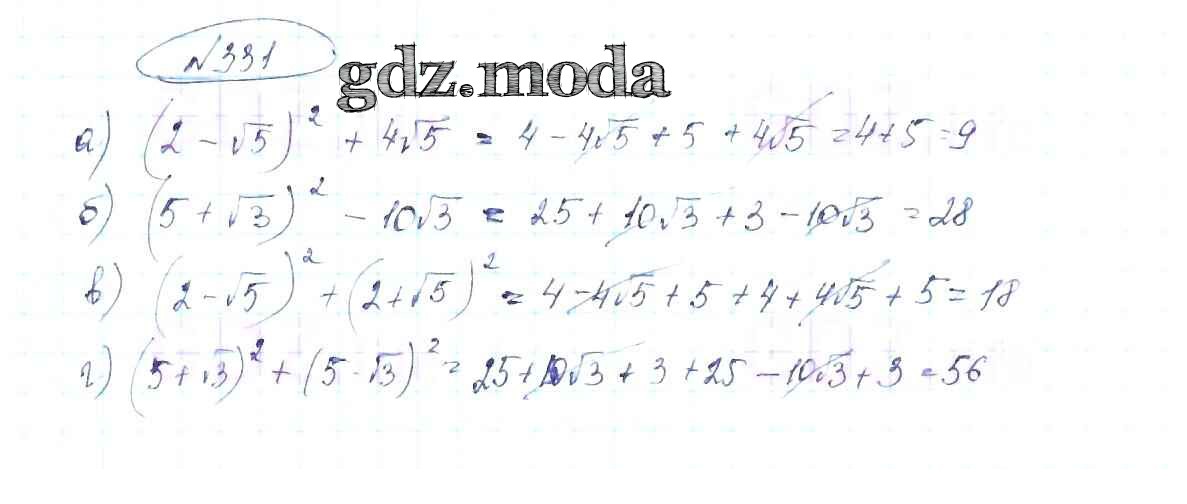 №331 gdz.moda
а) (2 - √5)² + 4√5 = 4 - 4√5 + 5 + 4√5 = 4+5 = 9
б) (5 + √3)² - 10√3 = 25 + 10√3 + 3 - 10√3 = 28
в) (2 - √5)² + (2 + √5)² = 4 - 4√5 + 5 + 4 + 4√5 + 5 = 18
г) (5 + √3)² + (5 - √3)² = 25 + 10√3 + 3 + 25 - 10√3 + 3 = 56